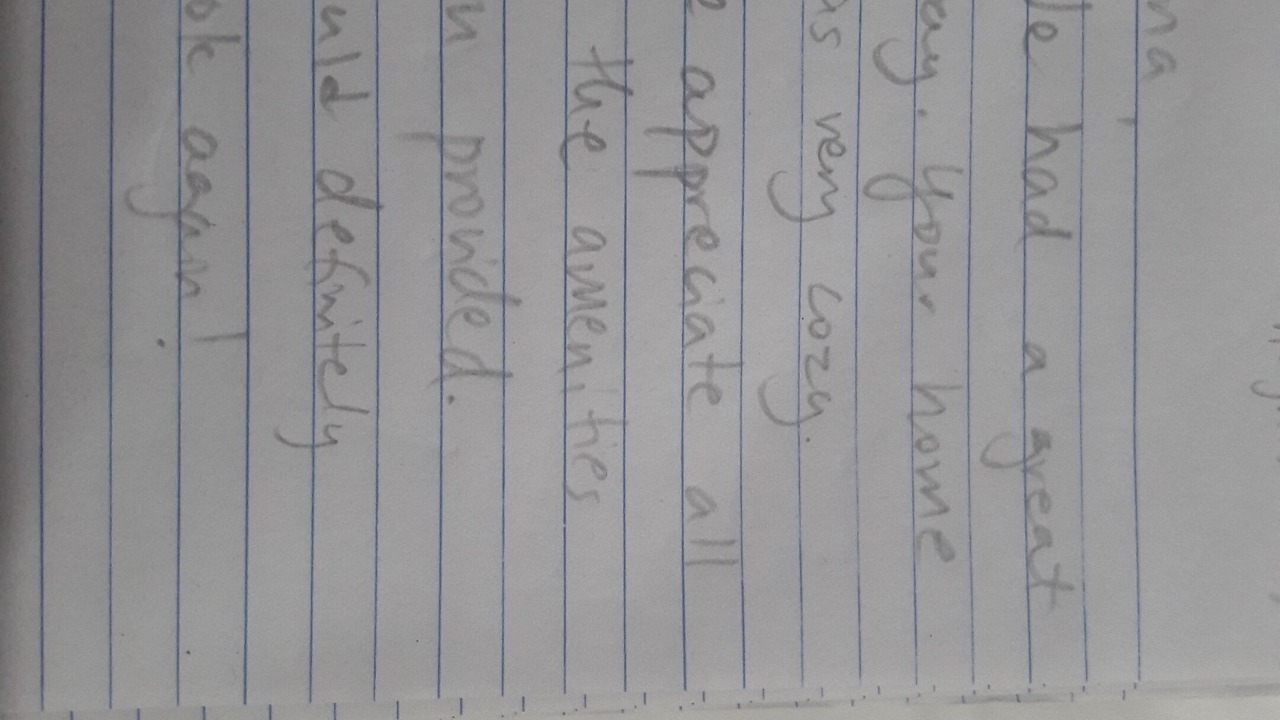 na,
le had a great
ay. Your home
as very cozy.
e appreciate all
the amenities
u provided.
uld definitely
ok again!